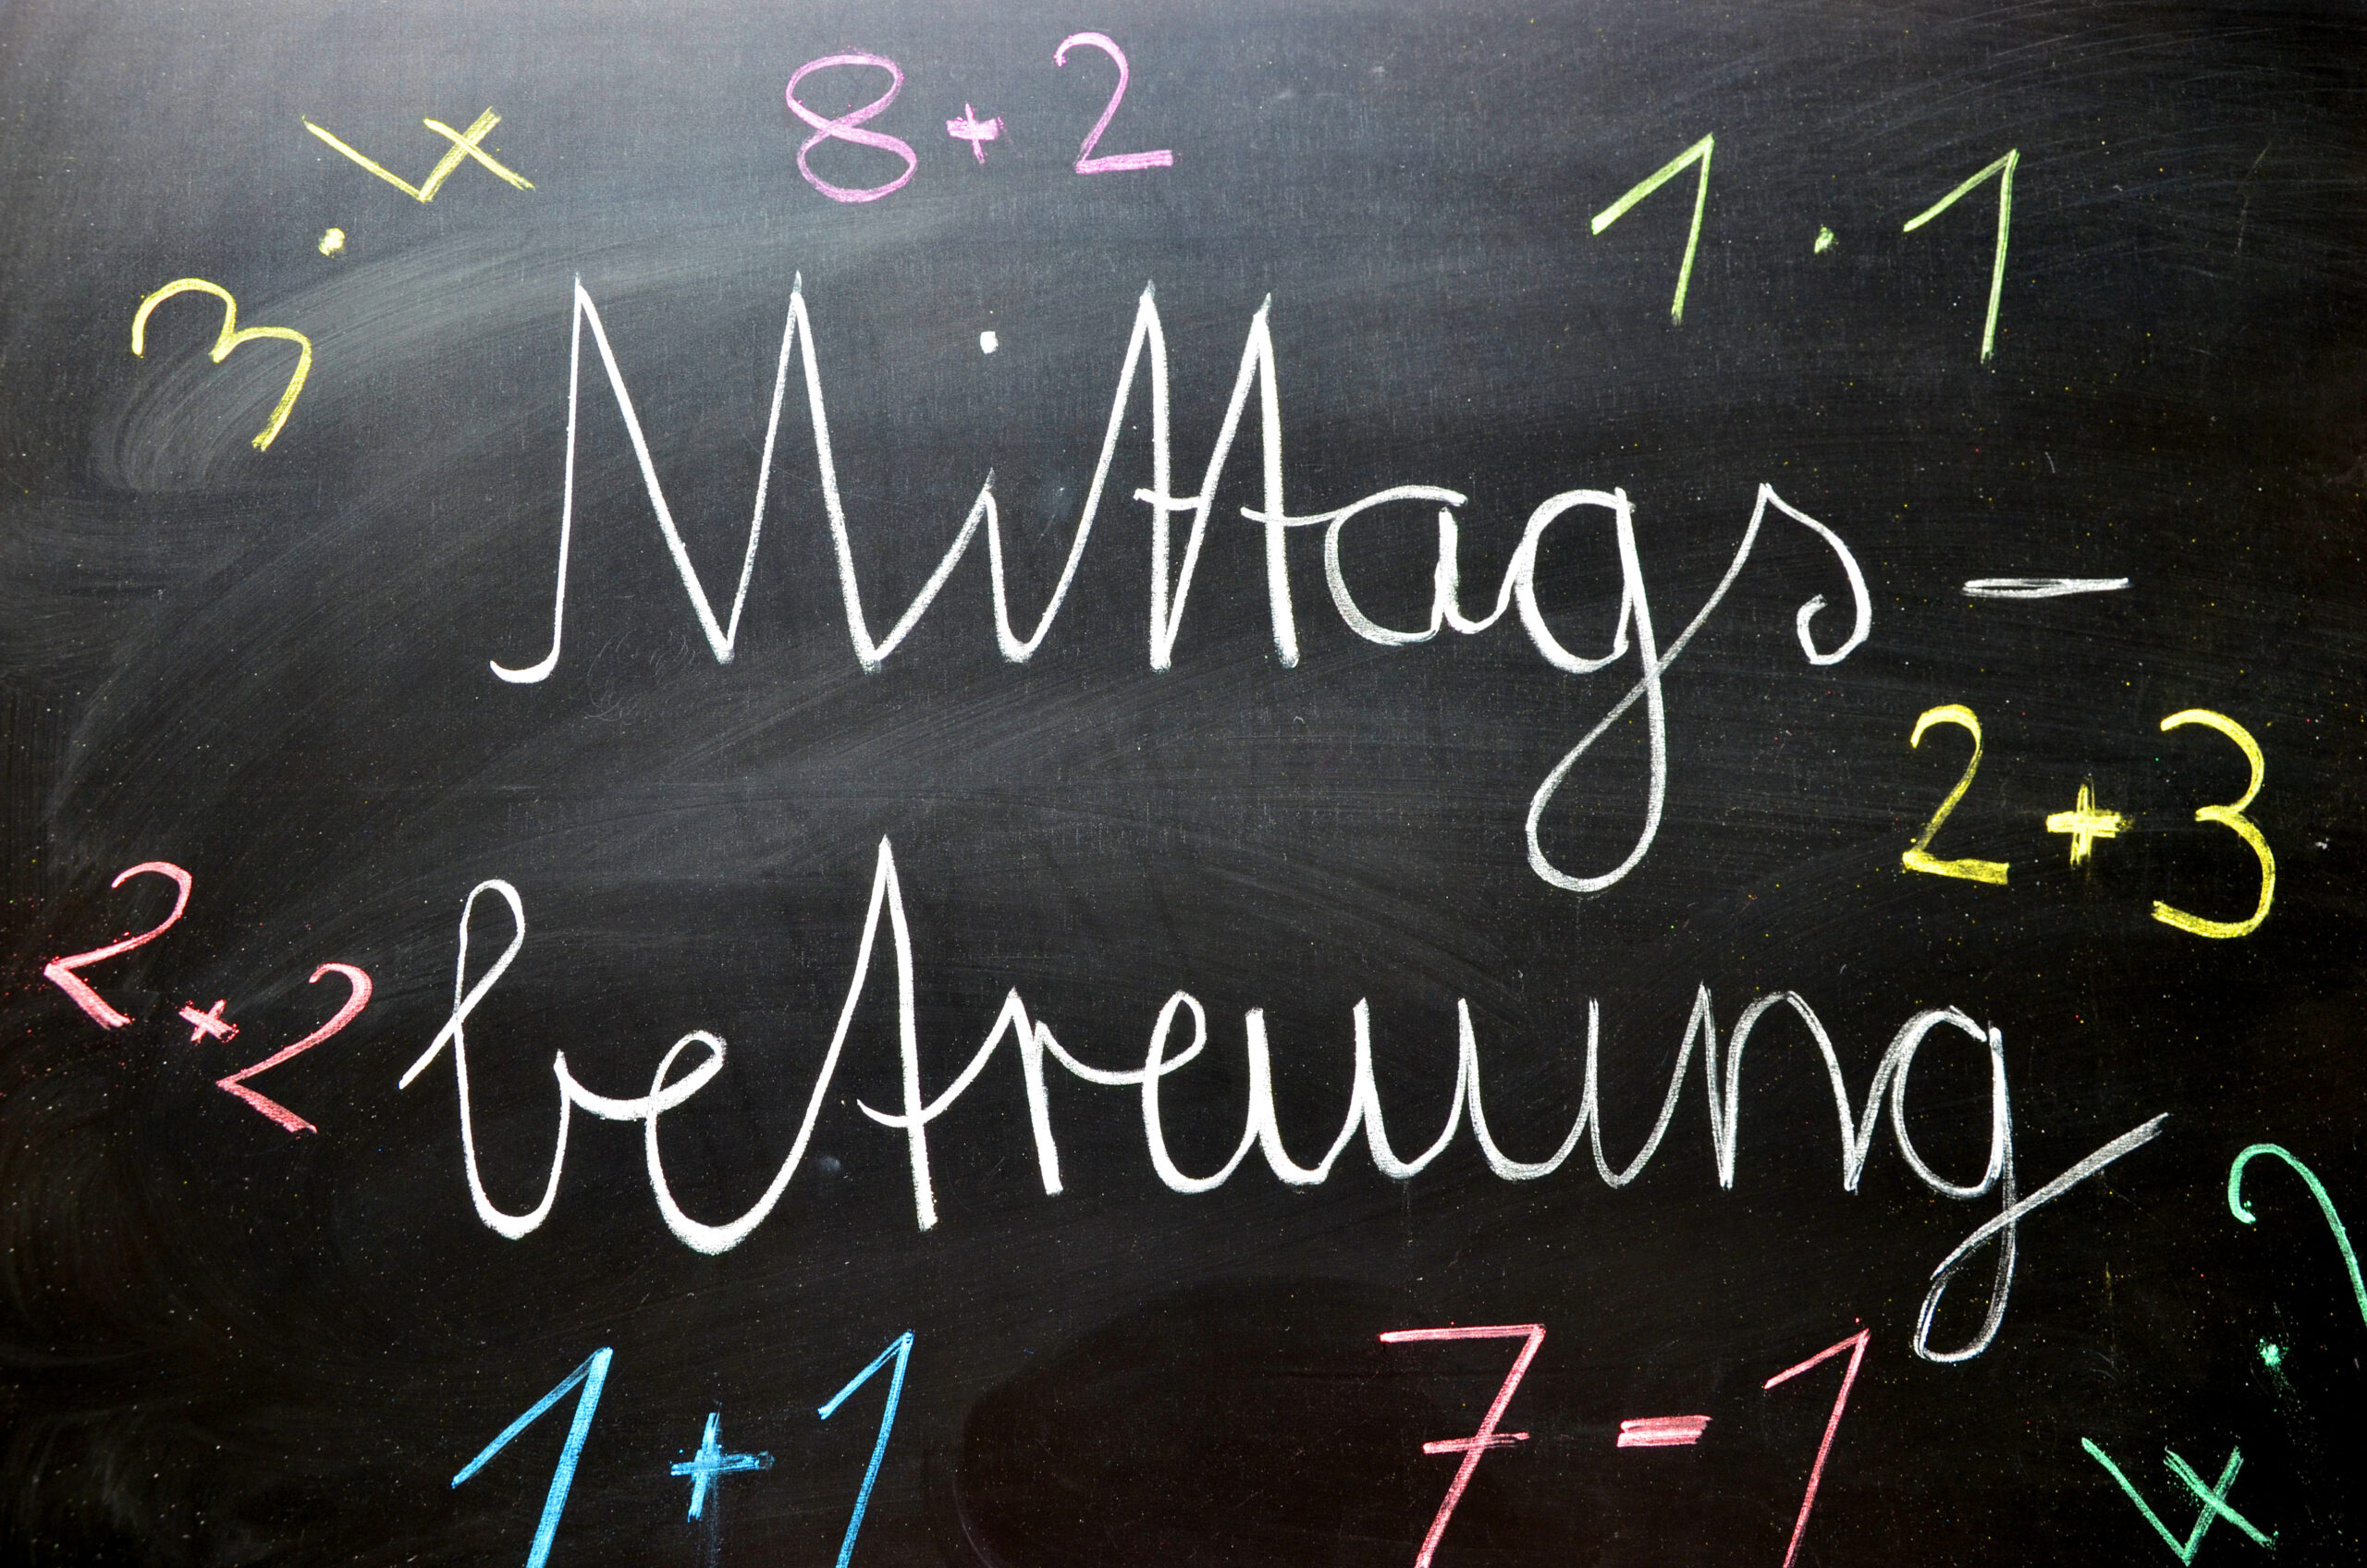 3 · 4
8 + 2
1 · 1
Mittags-
2 + 3
betreuung
2 + 2
1 + 1
7 - 1